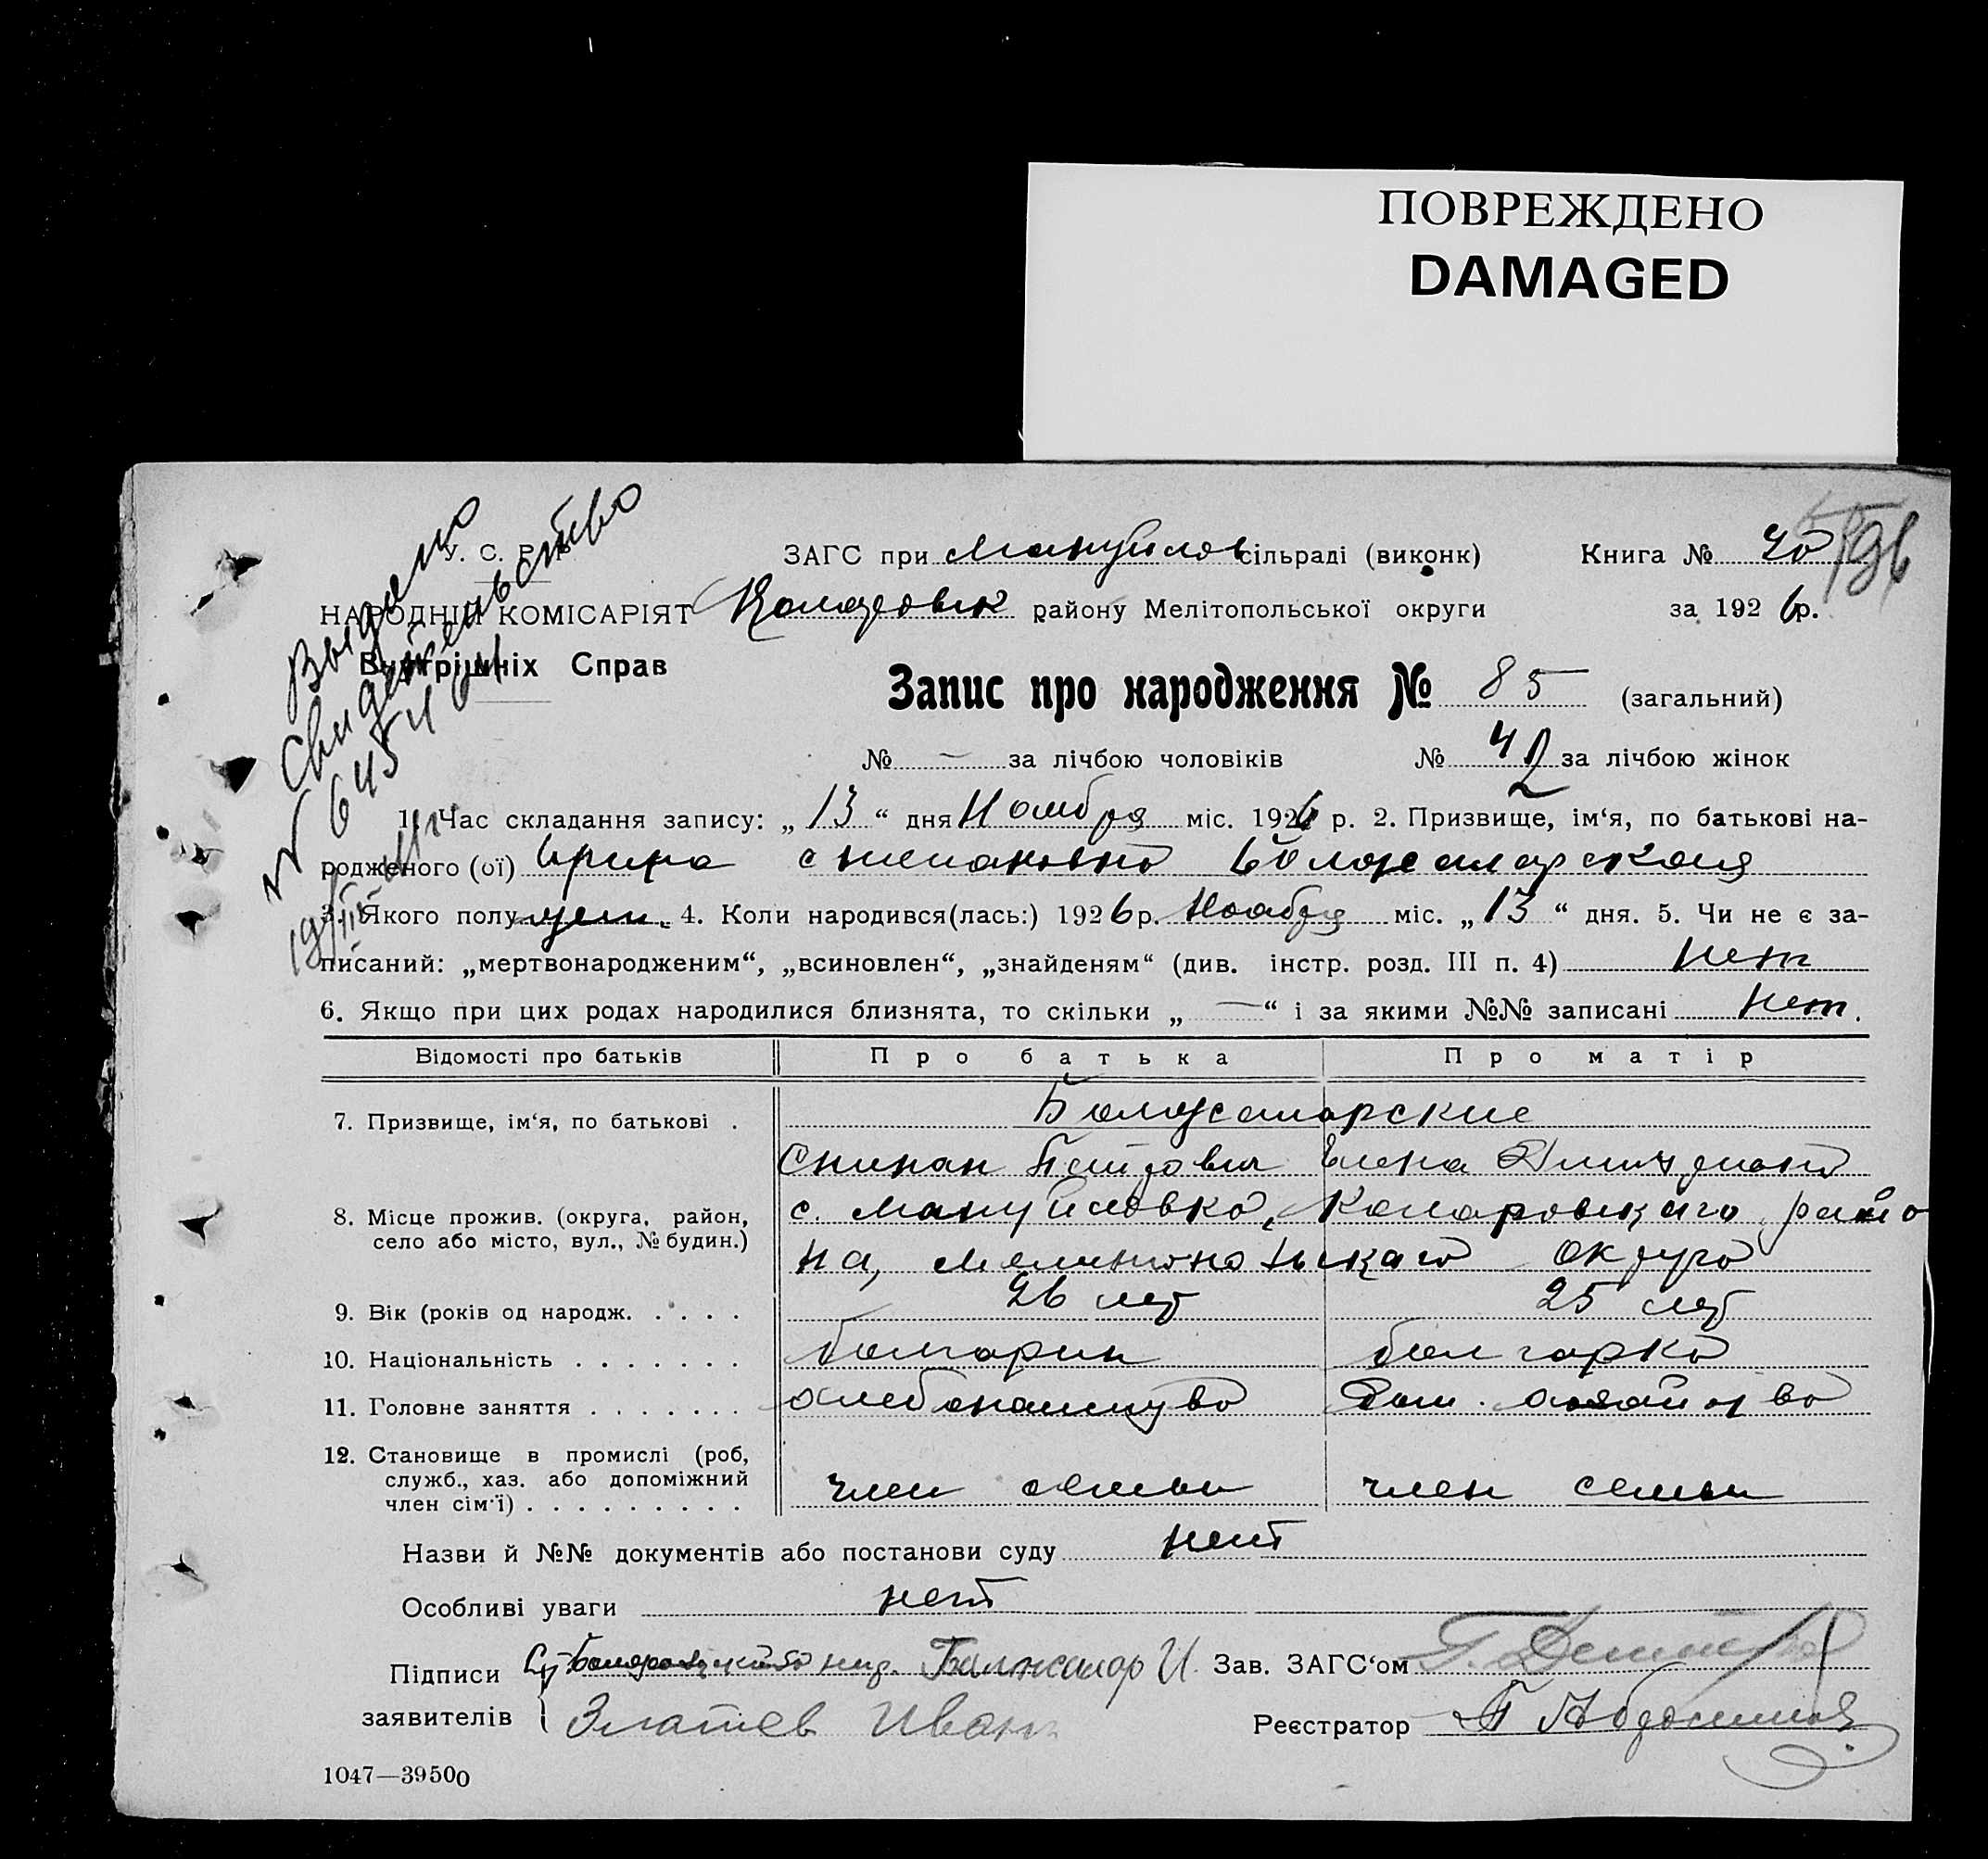 ПОВРЕЖДЕНО
DAMAGED
Выдано
Свидетельство
У. С. Р. Р.
ЗАГС при Мануйлов сільраді (виконк)
Книга № 40
196
НАРОДНІЙ КОМІСАРІЯТ
району Мелітопольської округи
за 1926 р.
Внутрішніх Справ
Запис про народження № 85 (загальний)
№ — за лічбою чоловіків
№ 42 за лічбою жінок
1. Час складання запису: „13“ дня Ноября міс. 1926 р. 2. Призвище, ім‘я, по батькові на-
родженого (ої) Ирина
3. Якого полу жен. 4. Коли народився(лась:) 1926 р. Ноября міс. „13“ дня. 5. Чи не є за-
писаний: „мертвонародженим“, „всиновлен“, „знайденям“ (див. інстр. розд. III п. 4) Нет
6. Якщо при цих родах народилися близнята, то скільки „ — “ і за якими №№ записані Нет.
Відомості про батьків
Про батька
Про матір
7. Призвище, ім‘я, по батькові .
Петрович Елена
8. Місце прожив. (округа, район,
село або місто, вул., № будин.)
с. Мануйловка, Комаровского райо
на, Мелитопольского округа
9. Вік (років од народж. . . . .
26 лет
25 лет
10. Національність . . . . . . .
болгарин
болгарка
11. Головне заняття . . . . . . .
хлебопашество
Дом. хозяйство
12. Становище в промислі (роб,
служб., хаз. або допоміжний
член сім‘ї) . . . . . . . . .
член семьи
член семьи
Назви й №№ документів або постанови суду нет
Особливі уваги нет
Підписи
Зав. ЗАГС‘ом
заявителів
Златев Иван
Реєстратор
1047—39500